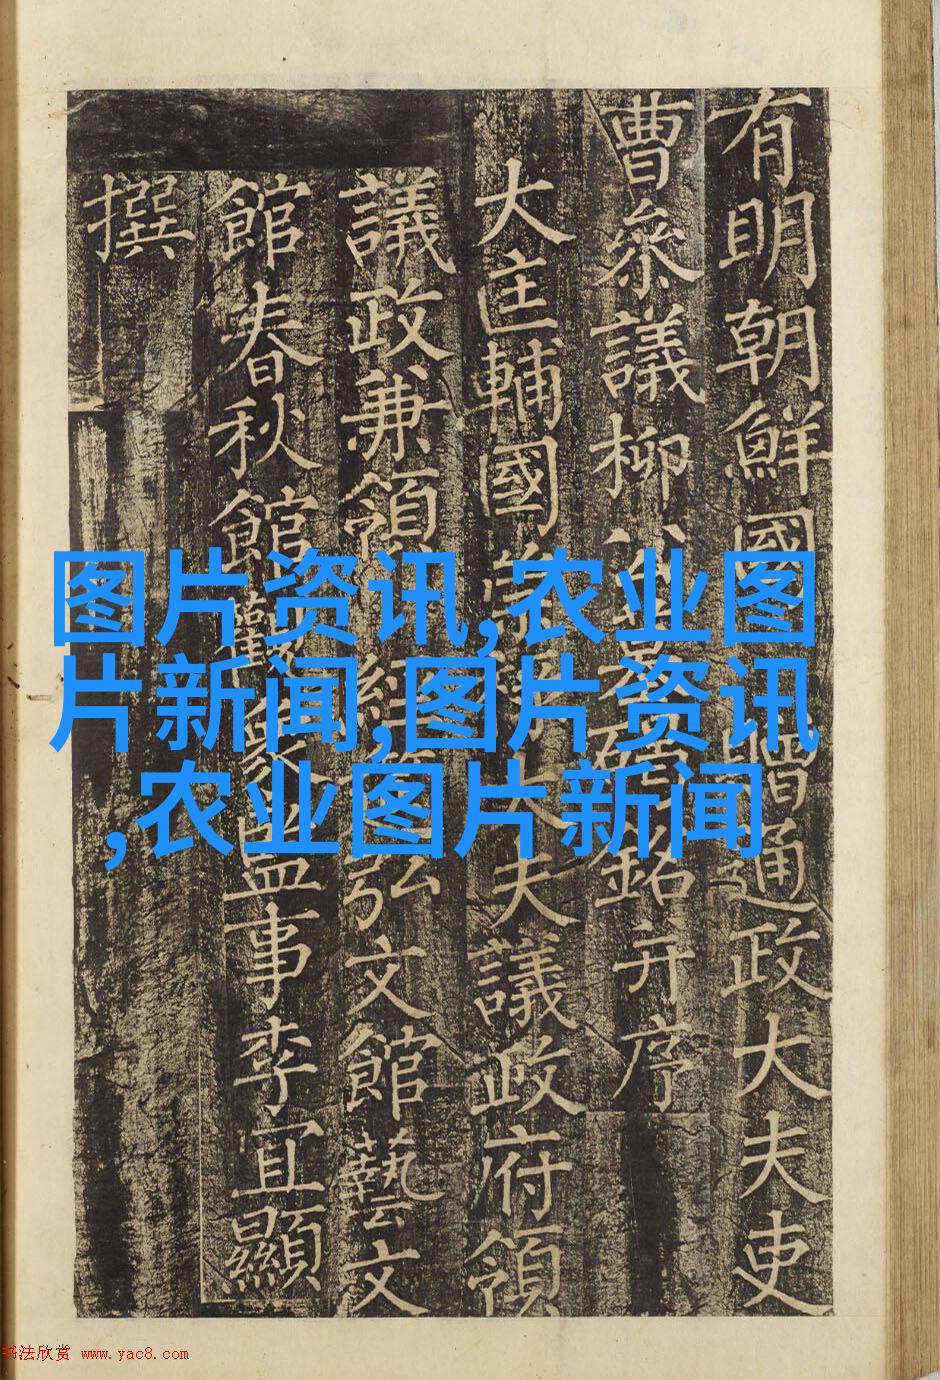 有明朝鮮國贈通政大夫吏
曹叅議柳公墓銘并序
大匡輔國崇祿大夫議政府領
議政兼領經筵弘文館藝文
館春秋館觀象監事李宜顯
撰
图片资讯,农业图
片新闻,图片资讯
,农业图片新闻
书法欣赏 www.yac8.com